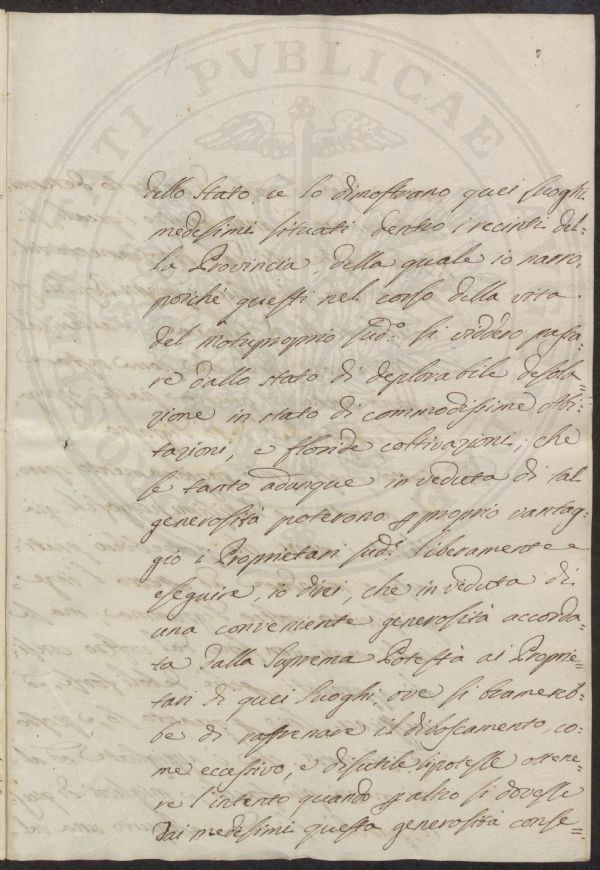 7
PROSPERITATI PVBLICAE
dello Stato, ce lo dimostrano quei luoghi
medesimi situati dentro i recinti del=
la Provincia, della quale io narro,
poiché questi nel corso della vita
del motuproprio sud.º si viddero passa=
re dallo stato di deplorabile desola
zione in stato di commodissime abi=
tazioni, e floride coltivazioni; che
se tanto adunque in veduta di tal
generosità poterono p proprio vantag=
gio i Proprietari sud.i liberamente
eseguire, io direi, che in veduta di
una conveniente generosità accorda=
ta dalla Suprema Potestà ai Proprie=
tari di quei luoghi, ove si bramereb=
be di raffrenare il diboscamento co=
me eccessivo, e disutile, si potesse ottene=
re l'intento quando p altro si dovesse
dai medesimi questa generosità conse=